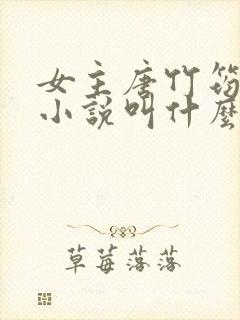 女主唐竹筠
小说叫什麽
草莓落落